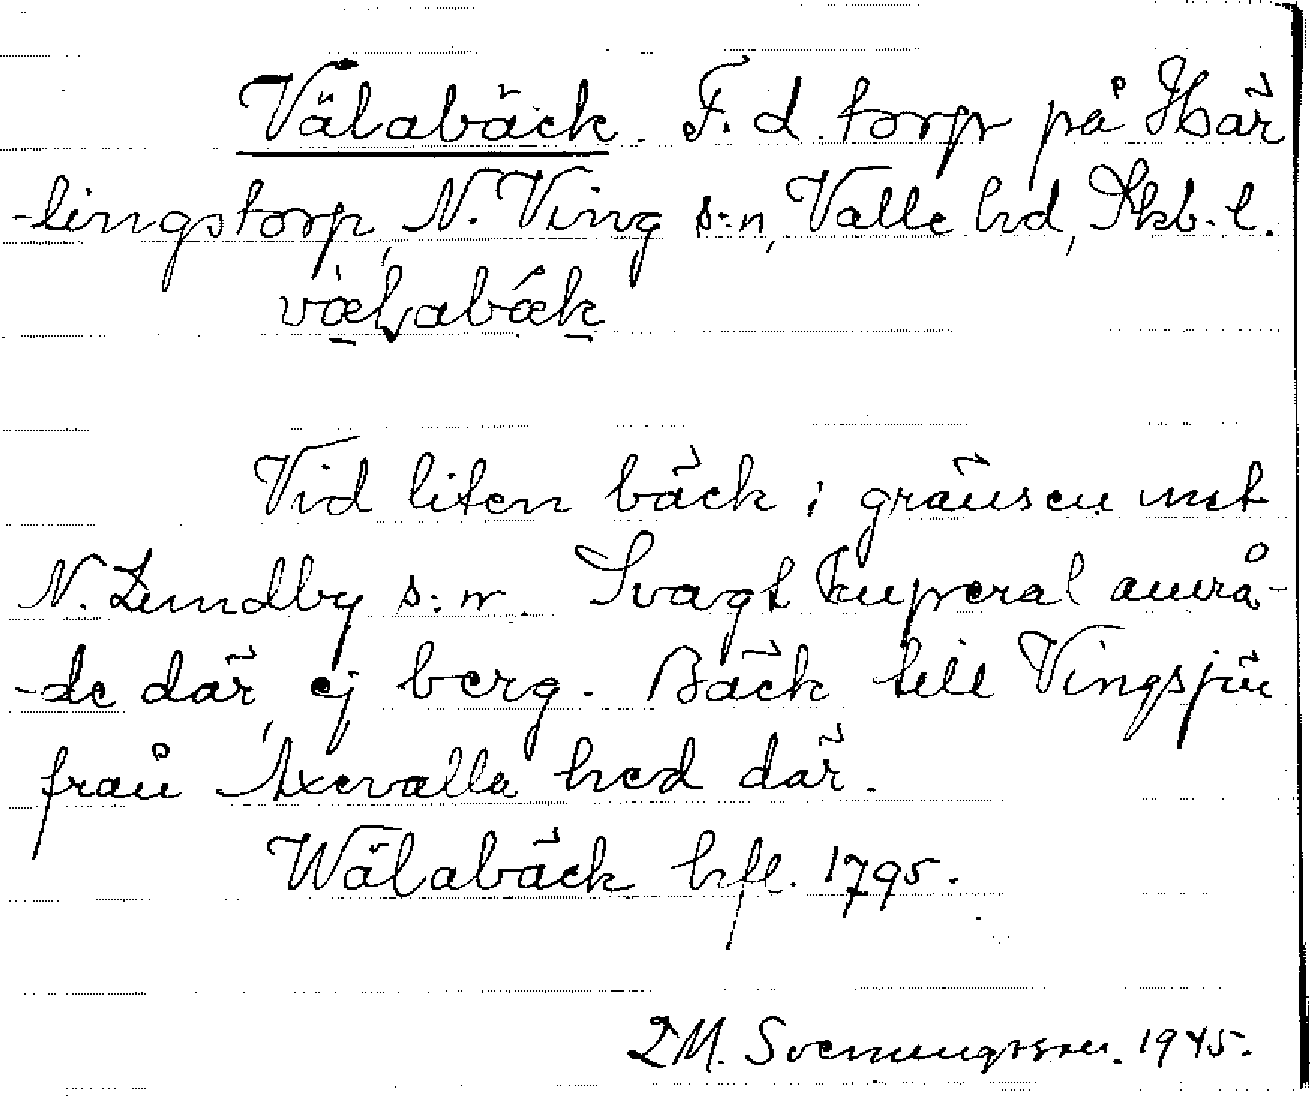 Välabäck. F. d. torp på Här
-lingstorp, N. Ving s:n, Valle hd, Skb. l.
væ̀labǽk
Vid liten bäck i gränsen mot
N. Lundby s:n. Svagt kuperat områ-
-de där, ej berg. Bäck till Vingsjön
från Axevalla hed där.
Wälabäck hfl. 1795.
Svenungsson. 1945.